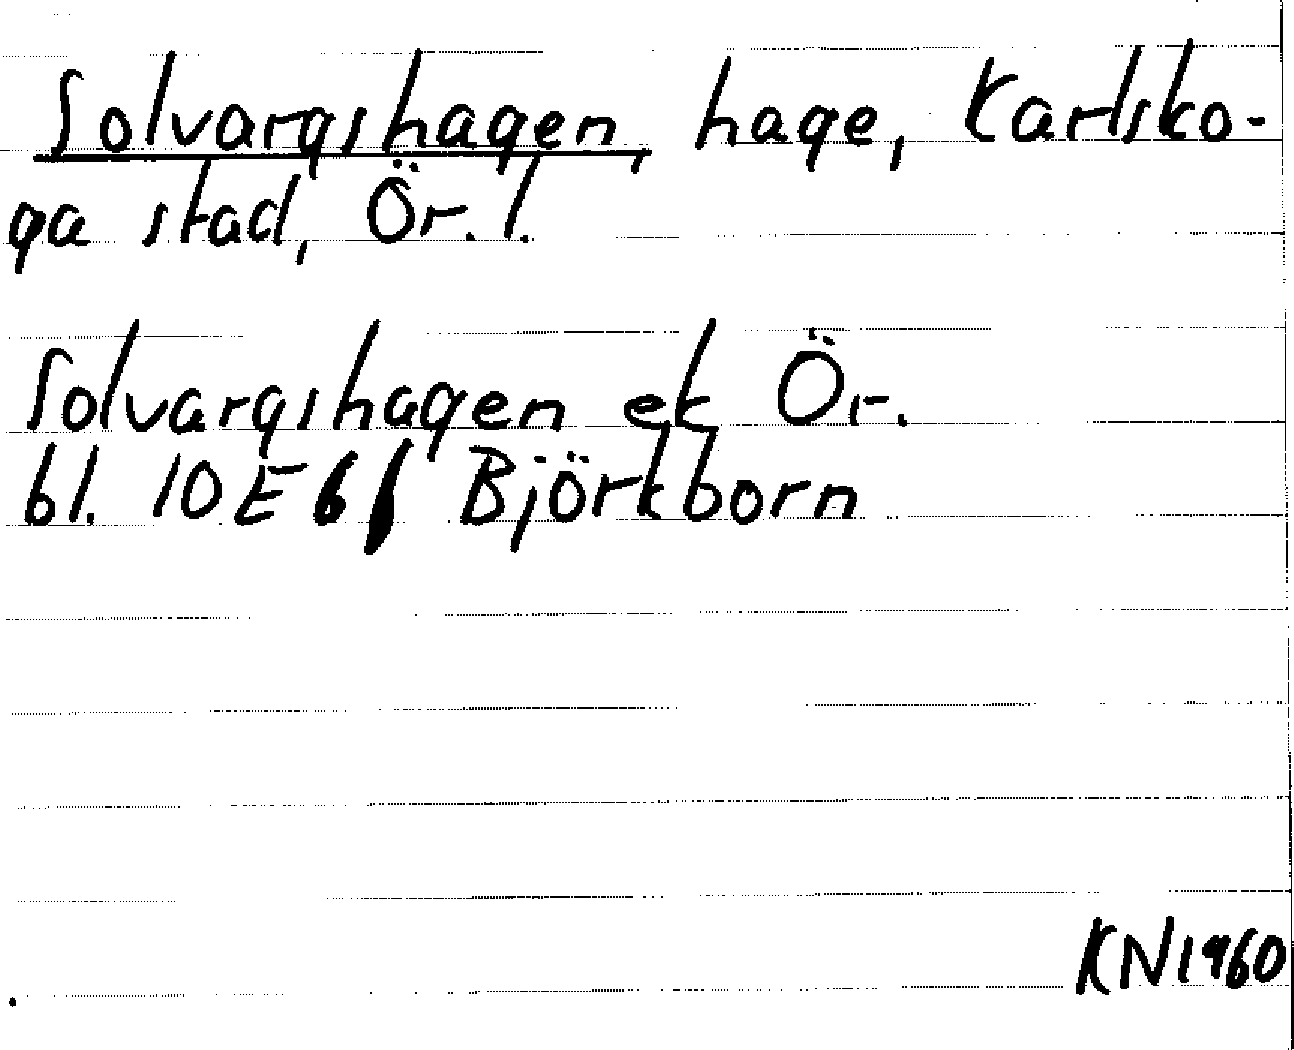 Solvargshagen, hage, Karlsko-
ga stad, Ör. l.
Solvargshagen ek Ör.
bl. 10E6f Björkborn
KN1960